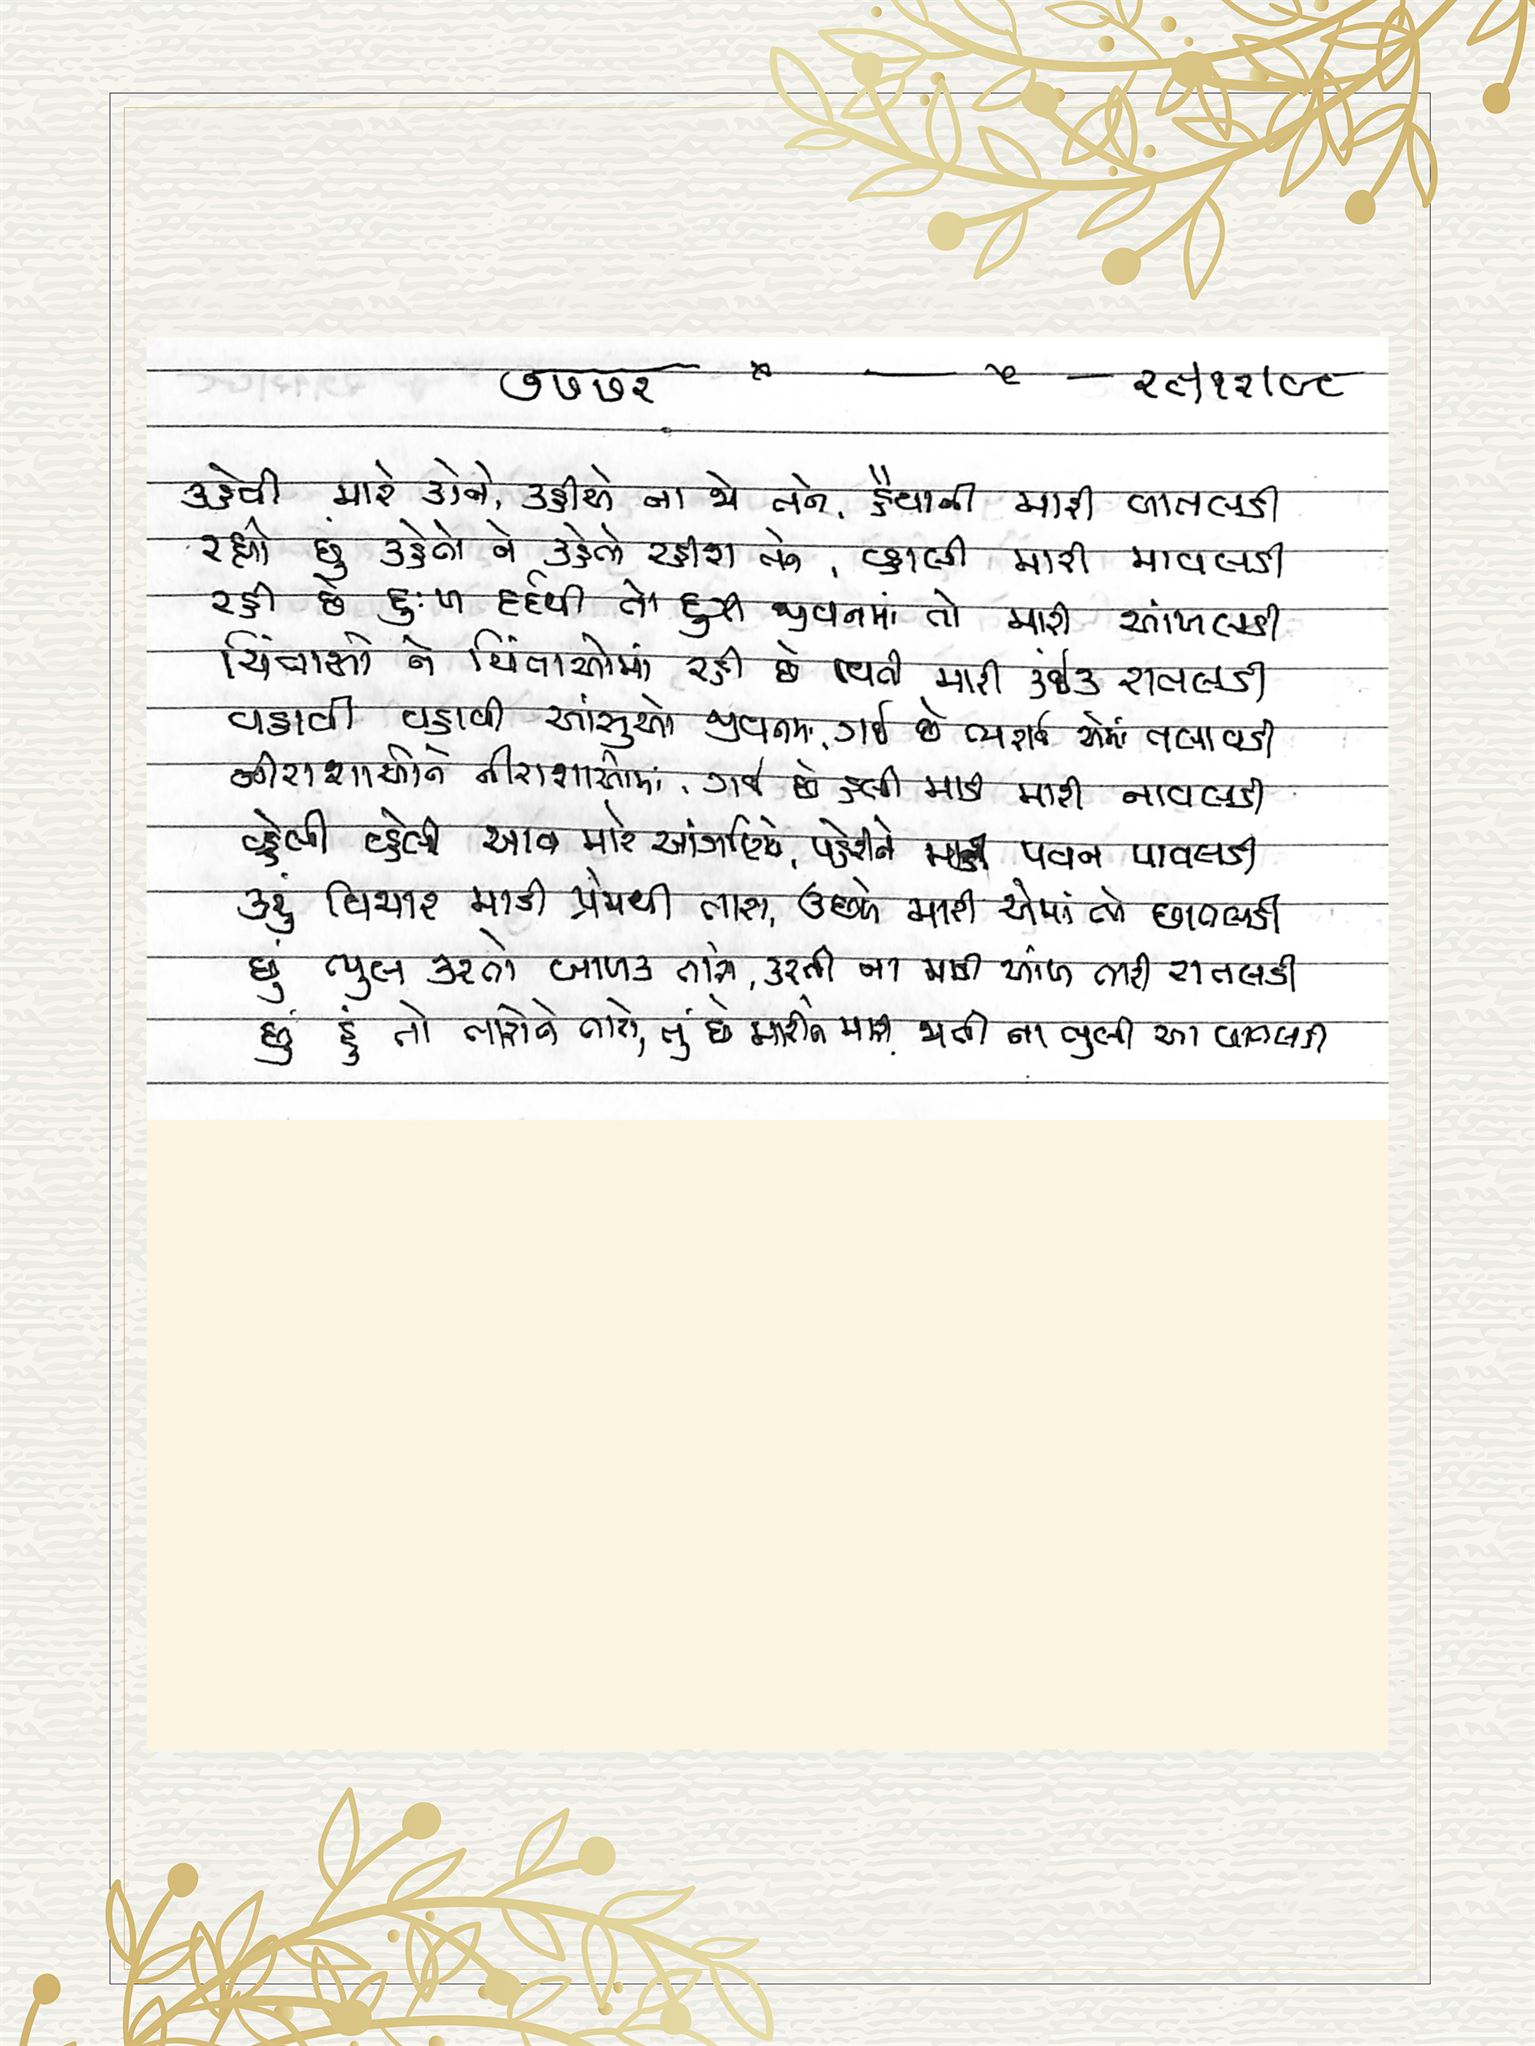 ૭૭૭૨ ૨૯/૧૨/૯૮
કહેવી મારે કોને, કહીએ ના જો તને, હૈયાની મારી વાતલડી
રહ્યો છું કહેતો ને કહેતો રહીશ તને, વ્હાલી મારી માવલડી
રહી છે દુઃખ દર્દથી તો દુઃખી જીવનમાં તો મારી આંખલડી
ચિંતાઓ ને ચિંતાઓમાં રહી છે વિતી મારી કંઈક રાતલડી
વહાવી વહાવી આંસુઓ જીવનમાં, ગઈ છે ભરાઈ એમાં તલાવડી
નીરાશાઓને નીરાશાઓમાં, ગઈ છે ડૂબી માડી મારી નાવલડી
વ્હેલી વ્હેલી આવ મારે આંગણિયે, પહેરીને માડી પવન પાવલડી
કરું વિચાર માડી પ્રેમથી તારા, ઉછળે મારી એમાં તો છાતલડી
છું ભૂલ કરતો બાળક તારો, કરતી ના માડી આંખ તારી રાતલડી
છું હું તો તારોને તારો, તું છે મારીને મારી, જતી ના ભુલી આ વાતલડી